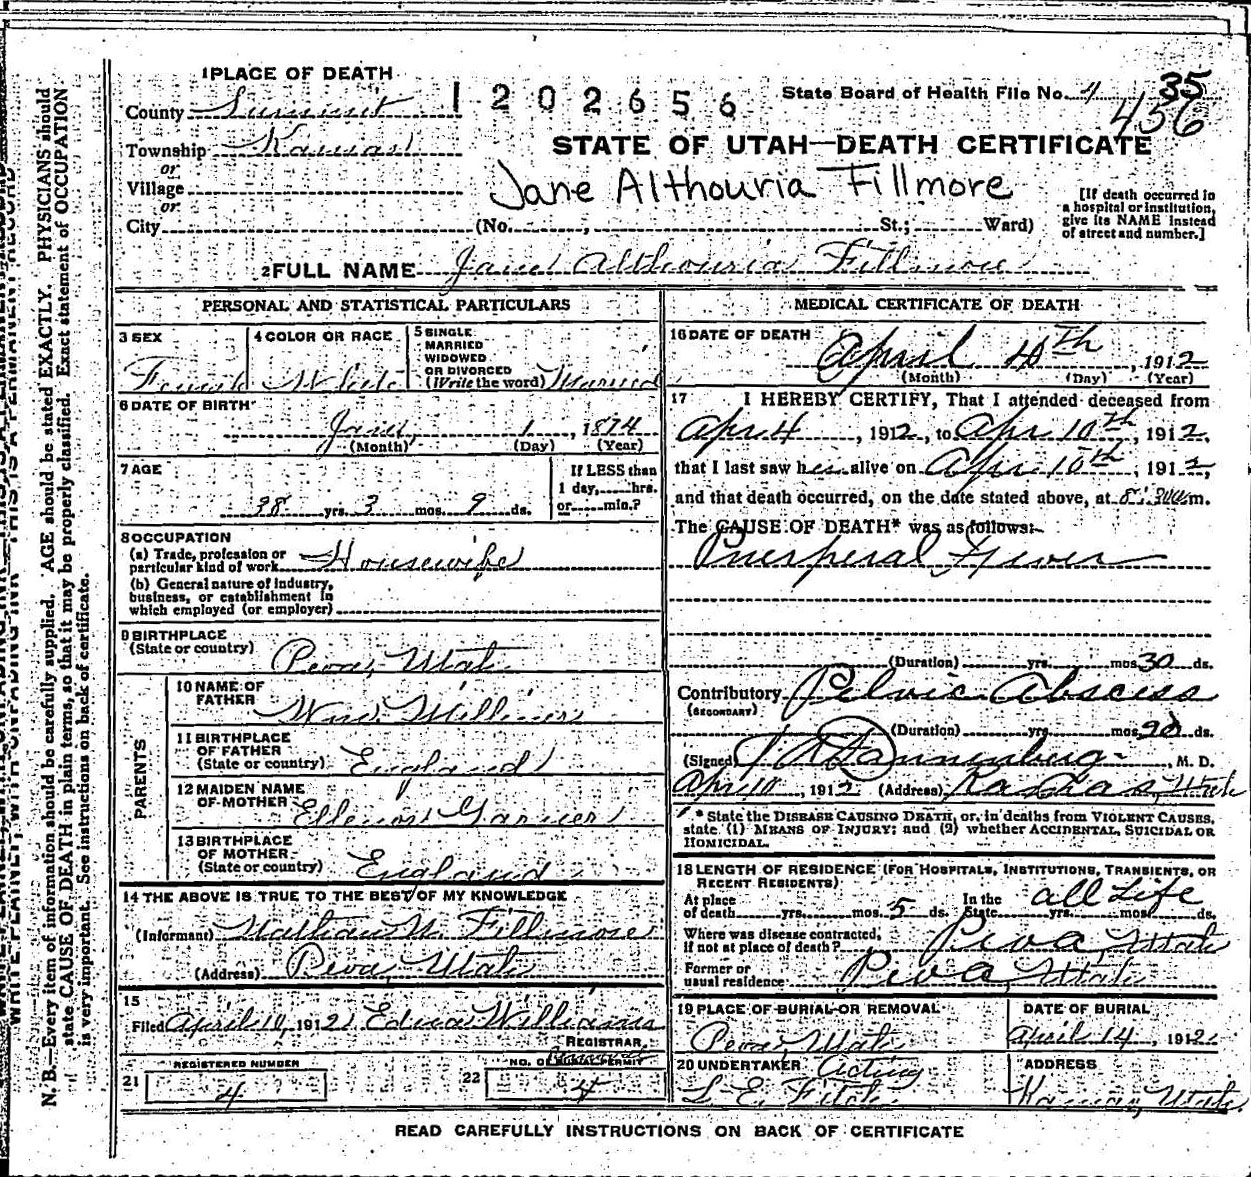 1 PLACE OF DEATH
County Summit
1202656
State Board of Health File No. 4 35
456
Township Kamas
STATE OF UTAH—DEATH CERTIFICATE
or
Village
Jane Althouria Fillmore
or
City (No. , St.; Ward)
[If death occurred in
a hospital or institution,
give its NAME instead
of street and number.]
2 FULL NAME Jane Althouria Fillmore
PERSONAL AND STATISTICAL PARTICULARS
3 SEX
Female
4 COLOR OR RACE
White
5 SINGLE
MARRIED
WIDOWED
OR DIVORCED
(Write the word) Married
6 DATE OF BIRTH
1, 1874
(Month) (Day) (Year)
7 AGE
38 yrs. 3 mos. 9 ds.
If LESS than
1 day, hrs.
or min.?
8 OCCUPATION
(a) Trade, profession or
particular kind of work Housewife
(b) General nature of industry,
business, or establishment in
which employed (or employer)
9 BIRTHPLACE
(State or country)
Peoa, Utah
PARENTS
10 NAME OF
FATHER
Wm.
11 BIRTHPLACE
OF FATHER
(State or country) England
12 MAIDEN NAME
OF MOTHER
13 BIRTHPLACE
OF MOTHER
(State or country) England
14 THE ABOVE IS TRUE TO THE BEST OF MY KNOWLEDGE
(Informant) Fillmore
(Address) Peoa, Utah
15
Filed April 10, 1912 Williams
REGISTRAR.
REGISTERED NUMBER
21 4
NO. OF PERMIT
22 4
MEDICAL CERTIFICATE OF DEATH
16 DATE OF DEATH
April 10th, 1912
(Month) (Day) (Year)
17 I HEREBY CERTIFY, That I attended deceased from
Apr 4, 1912, to Apr 10th, 1912,
that I last saw her alive on Apr 10th, 1912,
and that death occurred, on the date stated above, at 8:30 m.
The CAUSE OF DEATH* was as follows:
Puerperal Fever
(Duration) yrs. mos. 30 ds.
Contributory Pelvic Abscess
(SECONDARY)
(Duration) yrs. mos. 90 ds.
(Signed) , M. D.
Apr 10, 1912 (Address) Kamas, Utah
* State the DISEASE CAUSING DEATH, or, in deaths from VIOLENT CAUSES,
state (1) MEANS OF INJURY; and (2) whether ACCIDENTAL, SUICIDAL OR
HOMICIDAL.
18 LENGTH OF RESIDENCE (FOR HOSPITALS, INSTITUTIONS, TRANSIENTS, OR
RECENT RESIDENTS)
At place
of death yrs. mos. 5 ds.
In the
State all Life yrs. mos. ds.
Where was disease contracted,
if not at place of death? Peoa, Utah
Former or
usual residence Peoa, Utah
19 PLACE OF BURIAL OR REMOVAL
Peoa, Utah
DATE OF BURIAL
April 14, 1912
20 UNDERTAKER Acting
L. E. Fitch
ADDRESS
Kamas, Utah
READ CAREFULLY INSTRUCTIONS ON BACK OF CERTIFICATE
N. B.—Every item of information should be carefully supplied. AGE should be stated EXACTLY. PHYSICIANS should
state CAUSE OF DEATH in plain terms, so that it may be properly classified. Exact statement of OCCUPATION
is very important. See instructions on back of certificate.